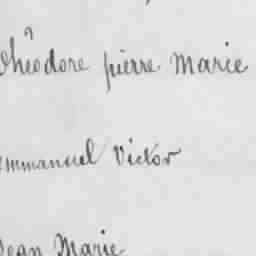 théodore pierre Marie
emmanuel Victor
Jean Marie